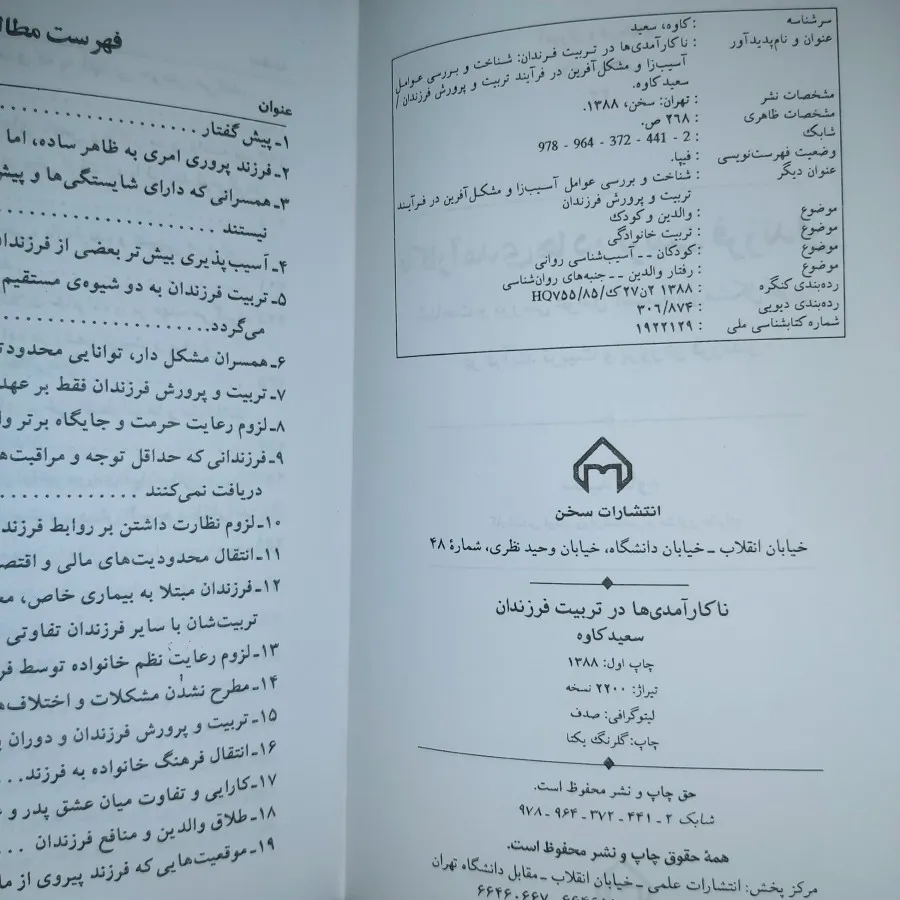 سرشناسه : کاوه، سعید
عنوان و نام‌پدیدآور : ناکارآمدی‌ها در تربیت فرزندان: شناخت و بررسی عوامل
آسیب‌زا و مشکل‌آفرین در فرآیند تربیت و پرورش فرزندان /
سعید کاوه.
مشخصات نشر : تهران: سخن، ۱۳۸۸.
مشخصات ظاهری : ۲۶۸ ص.
شابک : 978 - 964 - 372 - 441 - 2
وضعیت فهرست‌نویسی : فیپا.
عنوان دیگر : شناخت و بررسی عوامل آسیب‌زا و مشکل‌آفرین در فرآیند
تربیت و پرورش فرزندان
موضوع : والدین و کودک
موضوع : تربیت خانوادگی
موضوع : کودکان -- آسیب‌شناسی روانی
موضوع : رفتار والدین -- جنبه‌های روان‌شناسی
رده‌بندی کنگره : HQ۷۵۵/۸۵/ک۲۷ن۲ ۱۳۸۸
رده‌بندی دیویی : ۳۰۶/۸۷۴
شماره کتابشناسی ملی : ۱۹۲۲۱۲۹
انتشارات سخن
خیابان انقلاب ـ خیابان دانشگاه، خیابان وحید نظری، شمارهٔ ۴۸
ناکارآمدی‌ها در تربیت فرزندان
سعید کاوه
چاپ اول: ۱۳۸۸
تیراژ: ۲۲۰۰ نسخه
لیتوگرافی: صدف
چاپ: گلرنگ یکتا
حق چاپ و نشر محفوظ است.
شابک ۲ ـ ۴۴۱ ـ ۳۷۲ ـ ۹۶۴ ـ ۹۷۸
همهٔ حقوق چاپ و نشر محفوظ است.
مرکز پخش: انتشارات علمی ـ خیابان انقلاب ـ مقابل دانشگاه تهران
۶۶۴۶۰۶۶۷
فهرست
عنوان
۱ـ پیش گفتار
۲ـ فرزند پروری امری به ظاهر ساده، اما
۳ـ همسرانی که دارای شایستگی‌ها و
نیستند
۴ـ آسیب‌پذیری بیش‌تر بعضی از
۵ـ تربیت فرزندان به دو شیوه‌ی مستقیم
می‌گردد.
۶ـ همسران مشکل دار، توانایی
۷ـ تربیت و پرورش فرزندان فقط بر
۸ـ لزوم رعایت حرمت و جایگاه برتر
۹ـ فرزندانی که حداقل توجه و
دریافت نمی‌کنند
۱۰ـ لزوم نظارت داشتن بر روابط
۱۱ـ انتقال محدودیت‌های مالی و
۱۲ـ فرزندان مبتلا به بیماری خاص،
تربیت‌شان با سایر فرزندان تفاوتی
۱۳ـ لزوم رعایت نظم خانواده توسط
۱۴ـ مطرح نشدن مشکلات و
۱۵ـ تربیت و پرورش فرزندان و دوران
۱۶ـ انتقال فرهنگ خانواده به فرزند
۱۷ـ کارایی و تفاوت میان عشق پدر و
۱۸ـ طلاق والدین و منافع فرزندان
۱۹ـ موقعیت‌هایی که فرزند پیروی از